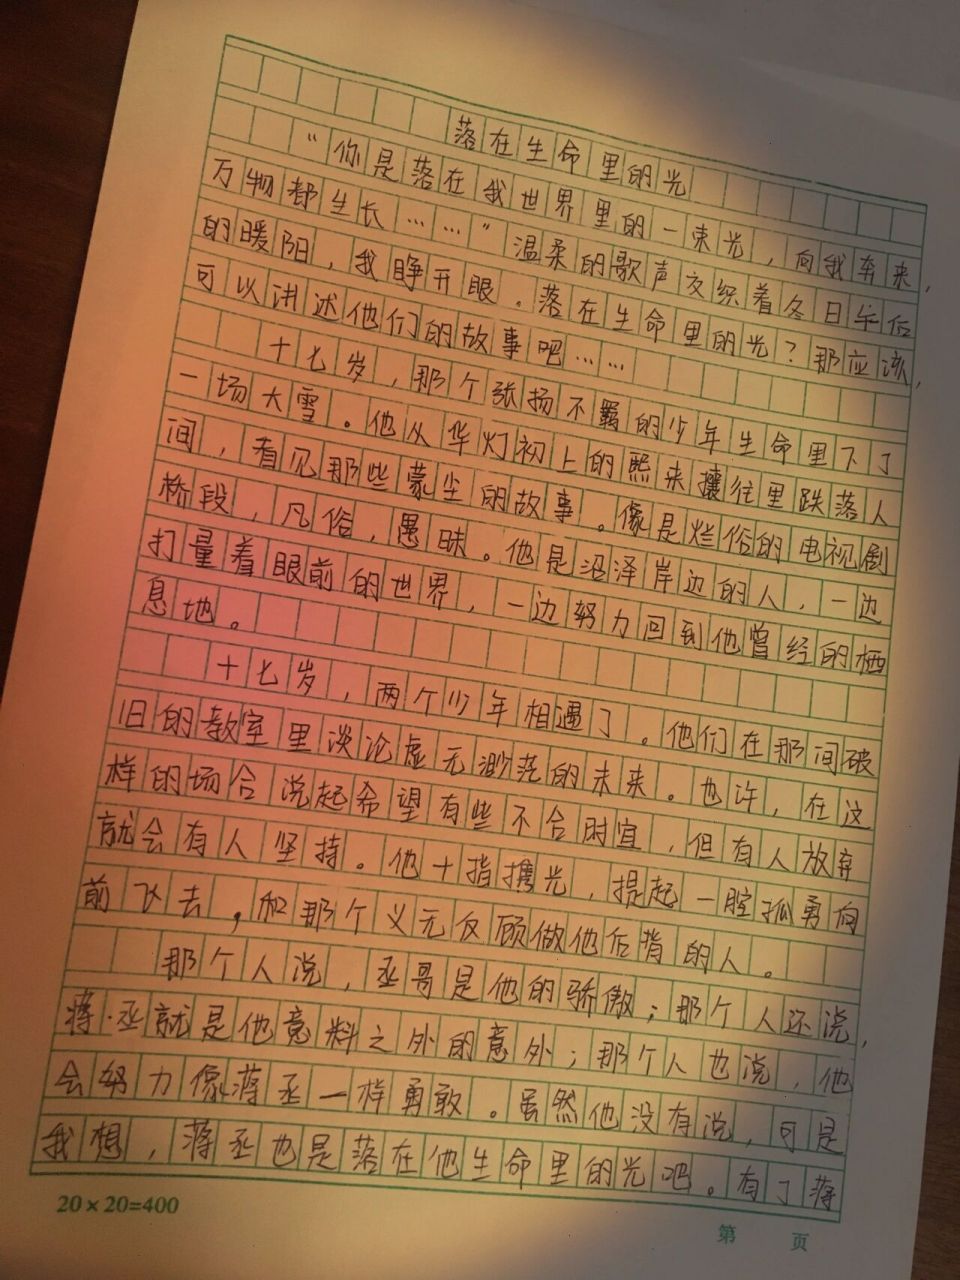 落在生命里的光
“你是落在我世界里的一束光，向我奔来，
万物都生长……”温柔的歌声交织着冬日午后
的暖阳，我睁开眼。落在生命里的光？那应该，
可以讲述他们的故事吧……
十七岁，那个张扬不羁的少年生命里下了
一场大雪。他从华灯初上的熙来攘往里跌落人
间，看见那些蒙尘的故事。像是烂俗的电视剧
桥段，凡俗，愚昧。他是沼泽岸边的人，一边
打量着眼前的世界，一边努力回到他曾经的栖
息地。
十七岁，两个少年相遇了。他们在那间破
旧的教室里谈论虚无渺茫的未来。也许，在这
样的场合说起希望有些不合时宜，但有人放弃
就会有人坚持。他十指携光，提起一腔孤勇向
前飞去，和那个义无反顾做他后背的人。
那个人说，丞哥是他的骄傲；那个人还说，
蒋丞就是他意料之外的意外；那个人也说，他
会努力像蒋丞一样勇敢。虽然他没有说，可是
我想，蒋丞也是落在他生命里的光吧。有了蒋
20×20=400
第 页